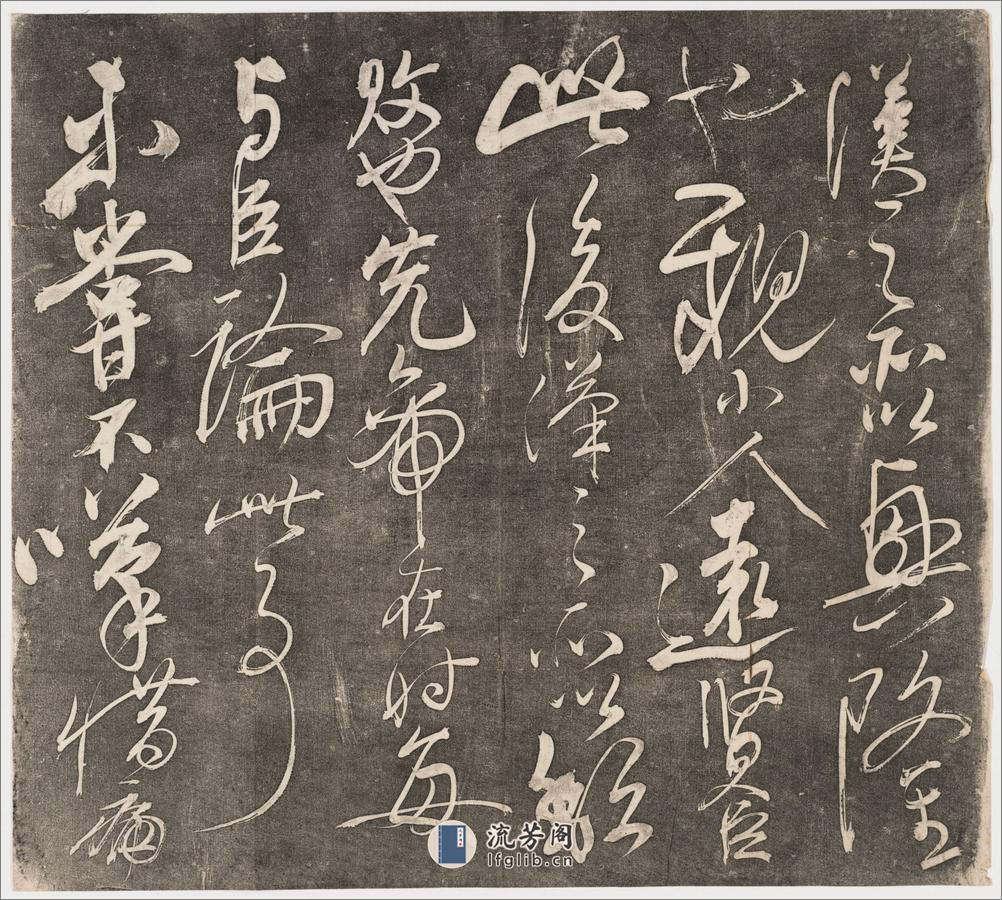 漢之所以興隆
也親小人遠賢臣
此後漢之所以傾
頹也先帝在时每
与臣論此事
未嘗不嘆惜痛
流芳阁
lfglib.cn